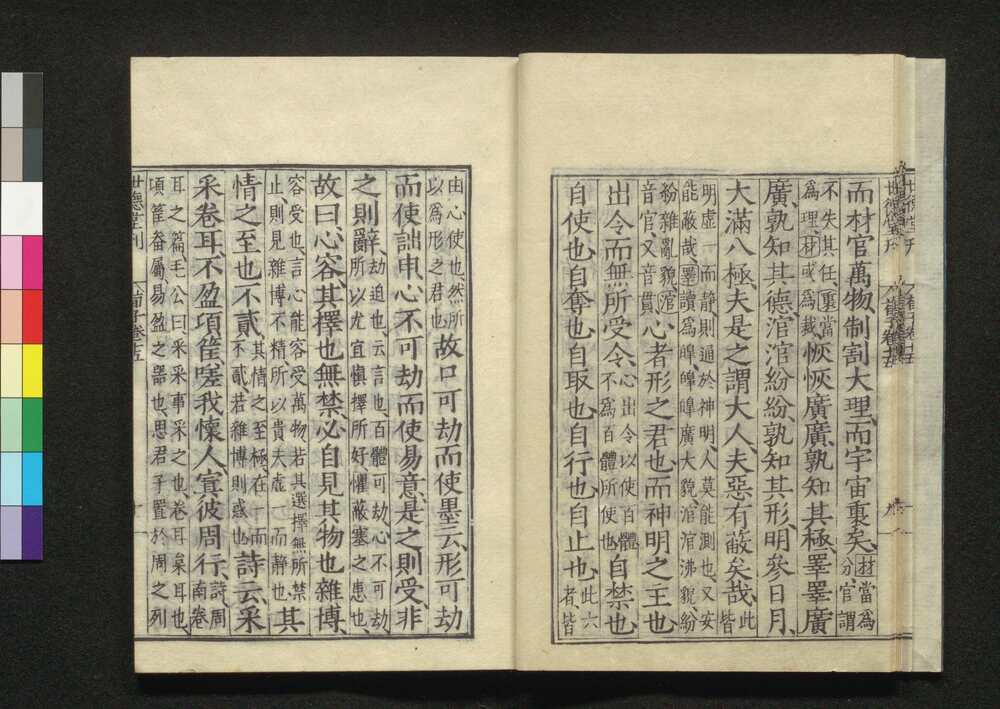 而材官萬物、制割大理、而宇宙裏矣、材當爲
分官謂
不失其任裏當
爲理材或爲裁恢恢廣廣、孰知其極、睪睪廣
廣、孰知其德、涫涫紛紛、孰知其形、明參日月、
大滿八極、夫是之謂大人、夫惡有蔽矣哉、此
皆
明虛一而靜則通於神明人莫能測也又安
能蔽哉睪讀爲皥皥皥廣大貌涫涫沸貌紛
紛雜亂貌涫
音官又音貫心者形之君也、而神明之王也
出令而無所受令、心出令以使百體
不爲百體所使也自禁也
自使也、自奪也、自取也、自行也、自止也、此六
者皆
由心使也然所
以爲形之君也故口可劫而使墨云、形可劫
而使詘申、心不可劫而使易意、是之則受、非
之則辭、劫迫也云言也百體可劫心不可劫
所以尤宜愼擇所好懼蔽塞之患也
故曰、心容、其擇也無禁、必自見、其物也雜博、
容受也言心能容受萬物若其選擇無所禁
止則見雜博不精所以貴夫虛一而靜也其
情之至也不貳、其情之至極在一而
不貳若雜博則惑也詩云、采
采卷耳、不盈頃筐、嗟我懷人、寘彼周行、詩周
南卷
耳之篇毛公曰采采事采之也卷耳枲耳也
頃筐畚屬易盈之器也思君子置於周之列
世德堂刊